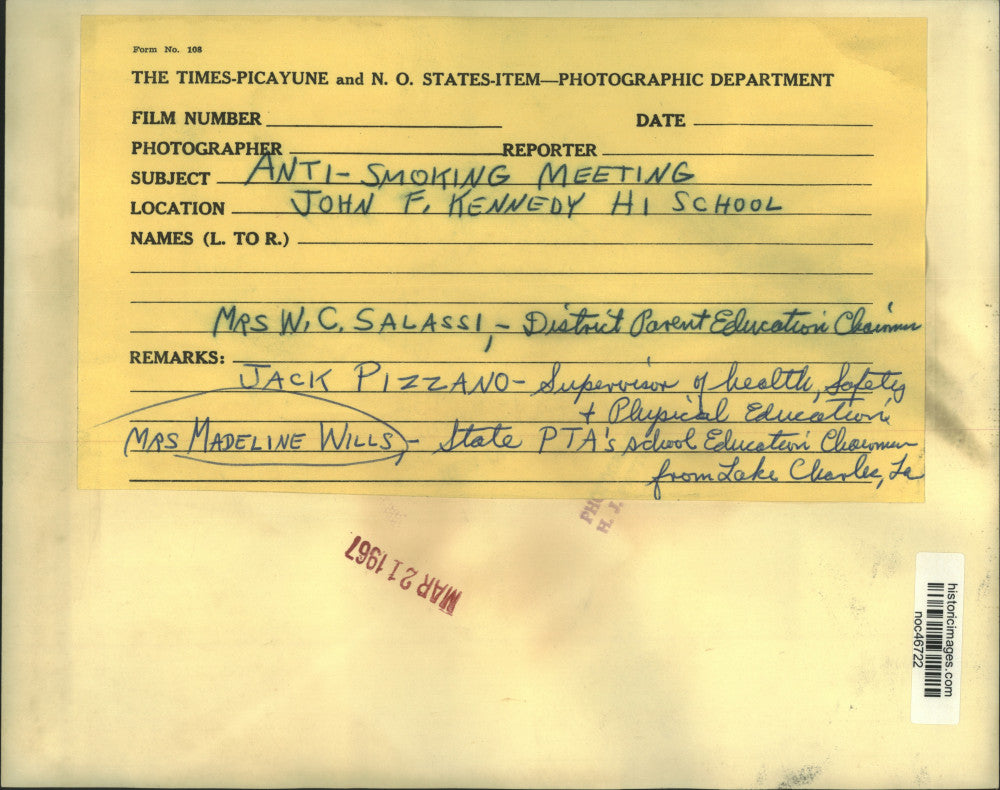 Form No. 108
THE TIMES-PICAYUNE and N. O. STATES-ITEM—PHOTOGRAPHIC DEPARTMENT
FILM NUMBER
DATE
PHOTOGRAPHER
REPORTER
SUBJECT ANTI-SMOKING MEETING
LOCATION JOHN F. KENNEDY HI SCHOOL
NAMES (L. TO R.)
MRS W.C. SALASSI, - District Parent Education Chairman
REMARKS:
JACK PIZZANO - Supervisor of health, Safety
+ Physical Education
MRS MADELINE WILLS, - State PTA's school Education Chairman
from Lake Charles, La
PHO
H. J.
MAR 21 1967
historicimages.com
noc46722